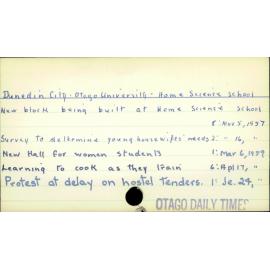 Dunedin City - Otago University - Home Science School
New block being built at Home Science School
8: Nov 5, 1957
Survey to determine young housewifes' needs 2: " 16, "
New Hall for women students 1: Mar 6, 1959
Learning to cook as they train 6: Apl 17, "
Protest at delay on hostel tenders. 1: Je. 24, "
OTAGO DAILY TIMES